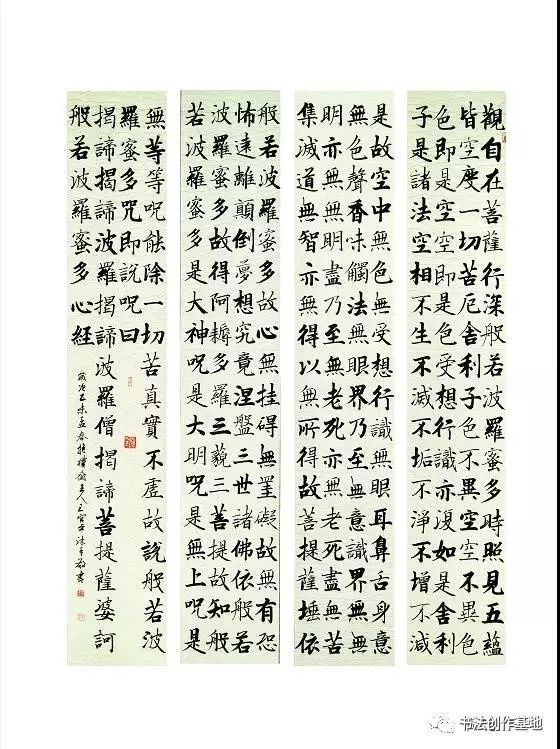 觀自在菩薩行深般若波羅蜜多時照見五蘊
皆空度一切苦厄舍利子色不異空空不異色
色即是空空即是色受想行識亦復如是舍利
子是諸法空相不生不滅不垢不淨不增不減
是故空中無色無受想行識無眼耳鼻舌身意
無色聲香味觸法無眼界乃至無意識界無無
明亦無無明盡乃至無老死亦無老死盡無苦
集滅道無智亦無得以無所得故菩提薩埵依
般若波羅蜜多故心無挂碍無罣礙故無有恐
怖遠離顛倒夢想究竟涅盤三世諸佛依般若
波羅蜜多故得阿耨多羅三藐三菩提故知般
若波羅蜜多是大神呪是大明呪是無上呪是
無等等呪能除一切苦真實不虛故說般若波
羅蜜多咒即說呪曰
揭諦揭諦波羅揭諦波羅僧揭諦菩提薩婆訶
般若波羅蜜多心經
歲次乙未孟春
书法创作基地